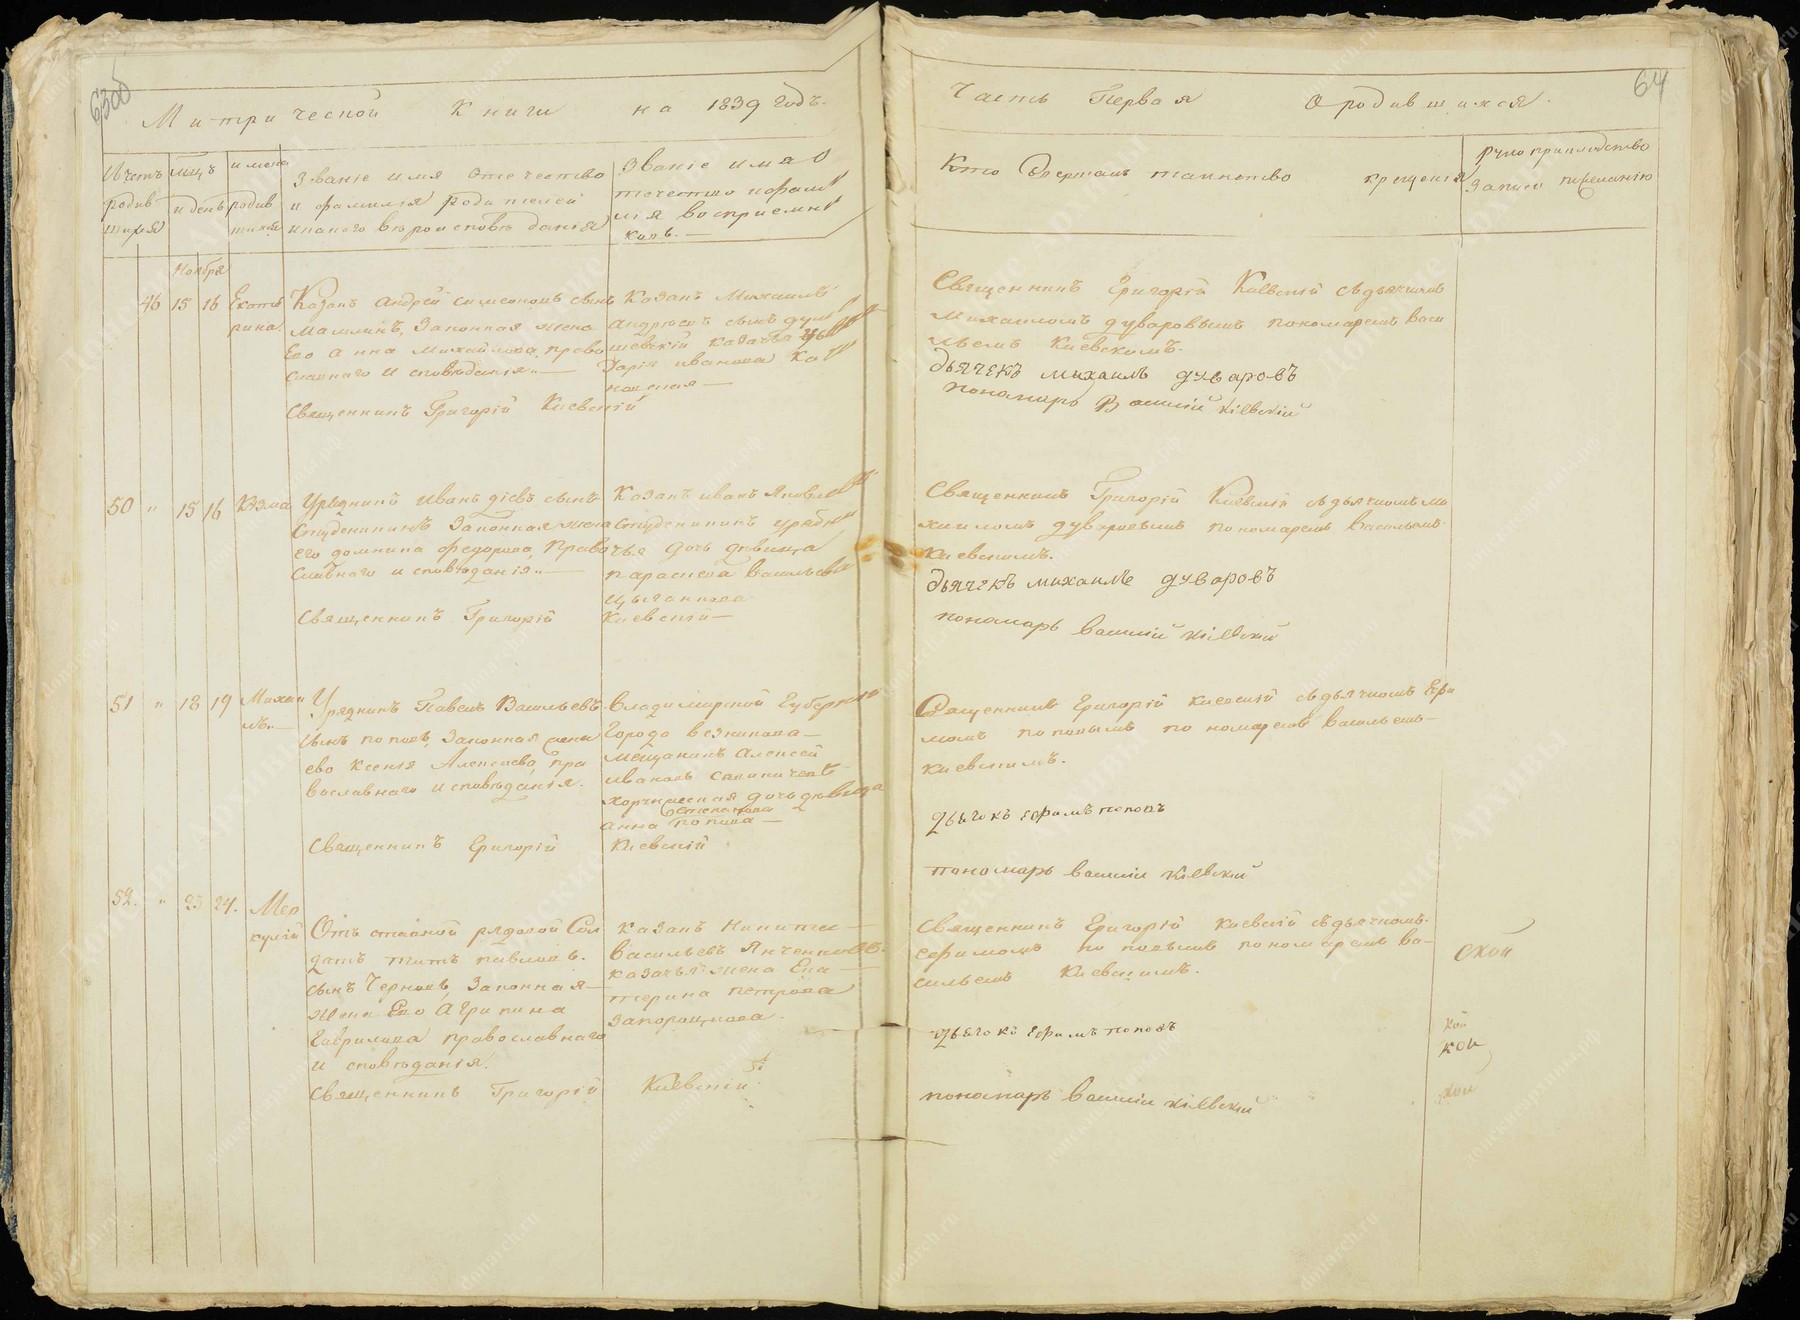 63об
64
Митрической Книги на 1839 годъ.
Часть Первая О родившихся.
Щетъ родившихся
мцъ и день
имена родившихся
Званіе имя отечество
и фамилія родителей
и какого вероисповеданія
Званіе имя о
течество и фами
лія восприемни
ковъ.
Кто совершалъ таинство крещенія
Рукоприкладство
записи по желанію
Ноября
46 15 16 Екате
рина
Казакъ Андрей Симеоновъ сынъ
Маслинъ, Законная жена
Его Анна Михайлова, право
славнаго исповеданія.
Казакъ Михаилъ
Андреевъ сынъ
шевскій казачья
Дарія иванова
Священникъ Григорій Киевскій
Священникъ Григорій Киевскій съ дьячкомъ
Михаиломъ дуваровымъ пономаремъ Васи
льемъ Киевскимъ.
дьячекъ михаилъ дуваровъ
пономарь Василий Кіевскій
50 " 15 16 Козма
Урядникъ Иванъ дісвъ сынъ
Студеникинъ Законная жена
его домникия федорова, Право
славнаго исповеданія.
Казакъ иванъ Яковлевъ
Студеникинъ урядни
чья дочь девица
параскева васильева
цыганкова
Священникъ Григорій Киевскій
Священникъ Григорій Киевскій съ дьячкомъ ми
хаиломъ дуваровымъ пономаремъ Васильемъ
Киевскимъ.
дьячекъ михаилъ дуваровъ
пономарь василий Кіевскій
51 " 18 19 Михаи
лъ
Урядникъ Павелъ Васильевъ
сынъ поповъ, Законная жена
ево Ксенія Алексеева, пра
вославнаго исповеданія.
Владимирской Губерніи
Города везникова
Мещанинъ Алексей
ивановъ
хорунжеская дочь девица
анна степанова попова
Священникъ Григорій Киевскій
Священникъ Григорій Киевскій съ дьячкомъ Ефи
момъ поповымъ пономаремъ Васильемъ
Киевскимъ.
дьячокъ ефимъ поповъ
пономарь василии Кіевскій
52. " 23 24. Мер
курій
Отъ ставной рядовой Сол
датъ титъ павловъ.
сынъ Черновъ, Законная
жена Его Агрипина
Гаврилова православнаго
исповеданія.
казакъ Никита
васильевъ Янченковъ.
казачья жена Ека
терина петрова
запорощкова.
Священникъ Григорій Киевскій
Священникъ Григорій Киевскій съ дьячкомъ
ефимомъ поповымъ пономаремъ ва
сильемъ Киевскимъ.
дьячокъ ефимъ поповъ
пономаръ василии Кіевскій
ской
кой
кои
кои